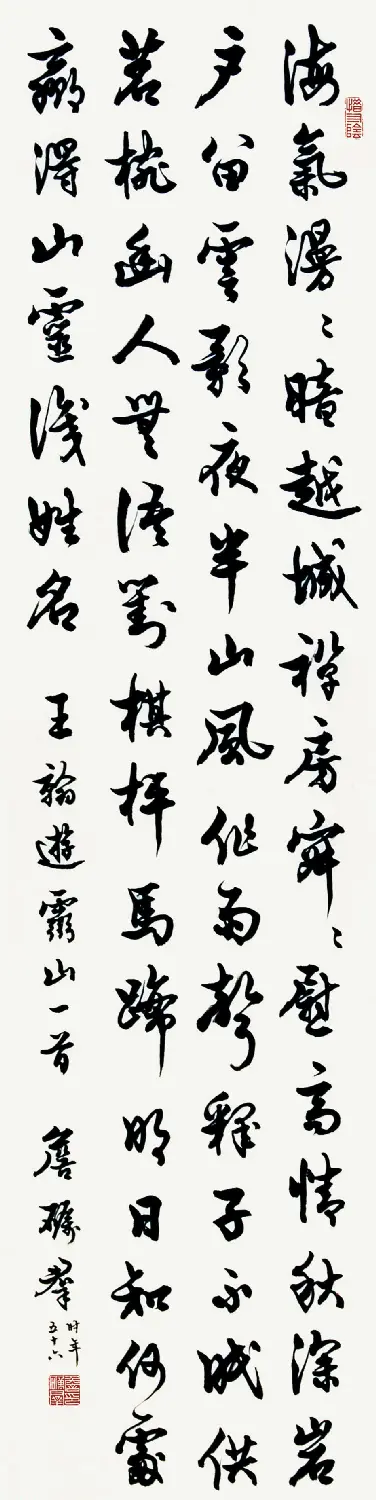 海氣漫〻暗越城禪房寂〻慰高情秋深岩
户留雲影夜半山風作雨聲釋子不眠供
茗椀幽人無語對棋枰馬蹄明日知何處
贏得山靈識姓名 王翰遊靈山一首 詹礪群 時年五十六